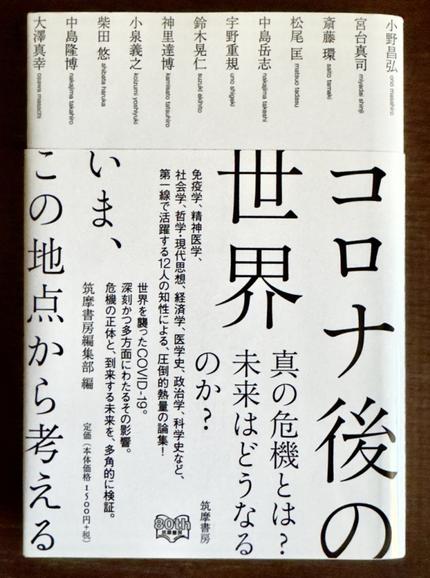 小野昌弘
ono masahiro
宮台真司
miyadai shinji
斎藤 環
saito tamaki
松尾 匡
matsuo tadasu
中島岳志
nakajima takeshi
宇野重規
uno shigeki
鈴木晃仁
suzuki akihito
神里達博
kamisato tatsuhiro
小泉義之
koizumi yoshiyuki
柴田 悠
shibata haruka
中島隆博
nakajima takahiro
大澤真幸
osawa masachi
コロナ後の
世界
いま、
この地点から考える
真の危機とは?
未来はどうなる
のか?
筑摩書房
免疫学、精神医学、
社会学、哲学・現代思想、経済学、医学史、政治学、科学史など、
第一線で活躍する12人の知性による、圧倒的熱量の論集!
世界を襲ったCOVID-19。
深刻かつ多方面にわたるその影響。
危機の正体と、到来する未来を、多角的に検証。
筑摩書房編集部 編
定価(本体価格1500円+税)
80th
筑摩書房